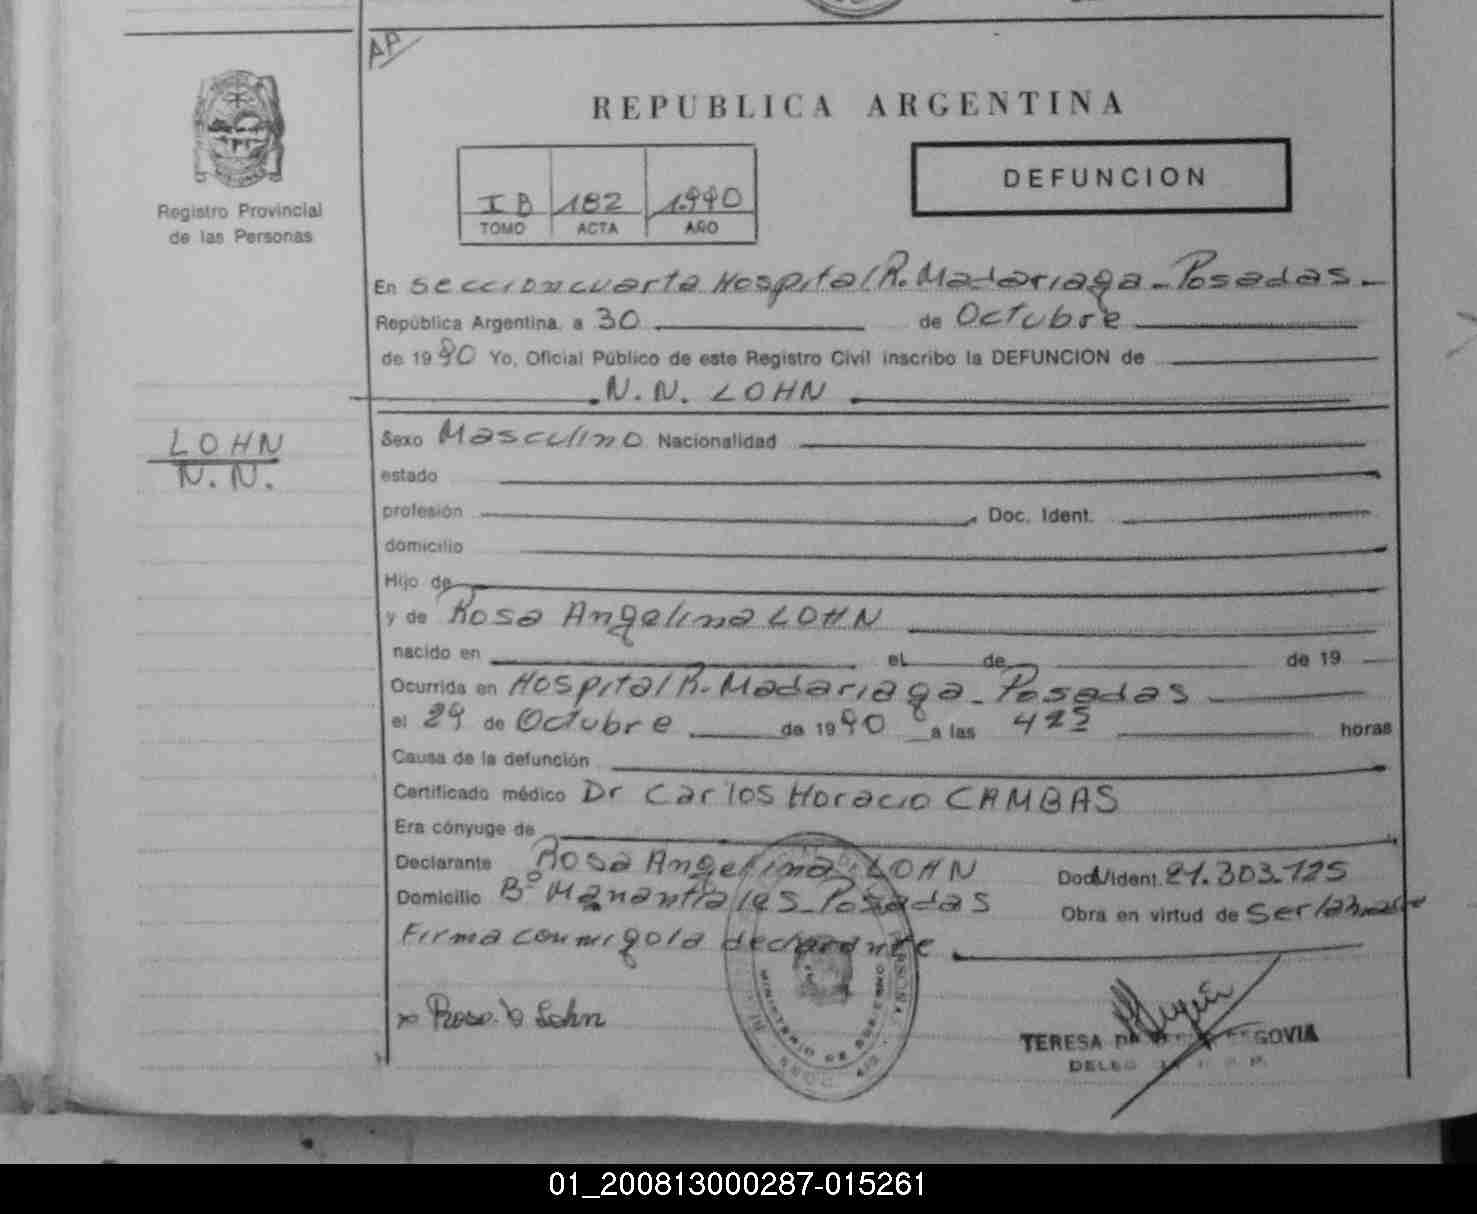 AP
REPUBLICA ARGENTINA
DEFUNCION
I B 182 1.990
TOMO ACTA AÑO
Registro Provincial
de las Personas
En Seccion cuarta Hospital R. Madariaga - Posadas -
República Argentina, a 30 de Octubre
de 1990 Yo, Oficial Público de este Registro Civil inscribo la DEFUNCION de
N.N. LOHN
LOHN
N.N.
Sexo Masculino Nacionalidad
estado
profesión Doc. Ident.
domicilio
Hijo de
y de Rosa Angelina LOHN
nacido en el de de 19
Ocurrida en Hospital R. Madariaga - Posadas
el 29 de Octubre de 1990 a las horas
Causa de la defunción
Certificado médico Dr Carlos Horacio CAMBAS
Era cónyuge de
Declarante Rosa Angelina LOHN Doc. Ident. 21.303.125
Domicilio B° Manantiales - Posadas Obra en virtud de Ser la
Firma conmigo la declarante
x Rosa Lohn
MINISTERIO DE GOBIERNO
TERESA SEGOVIA
01_200813000287-015261